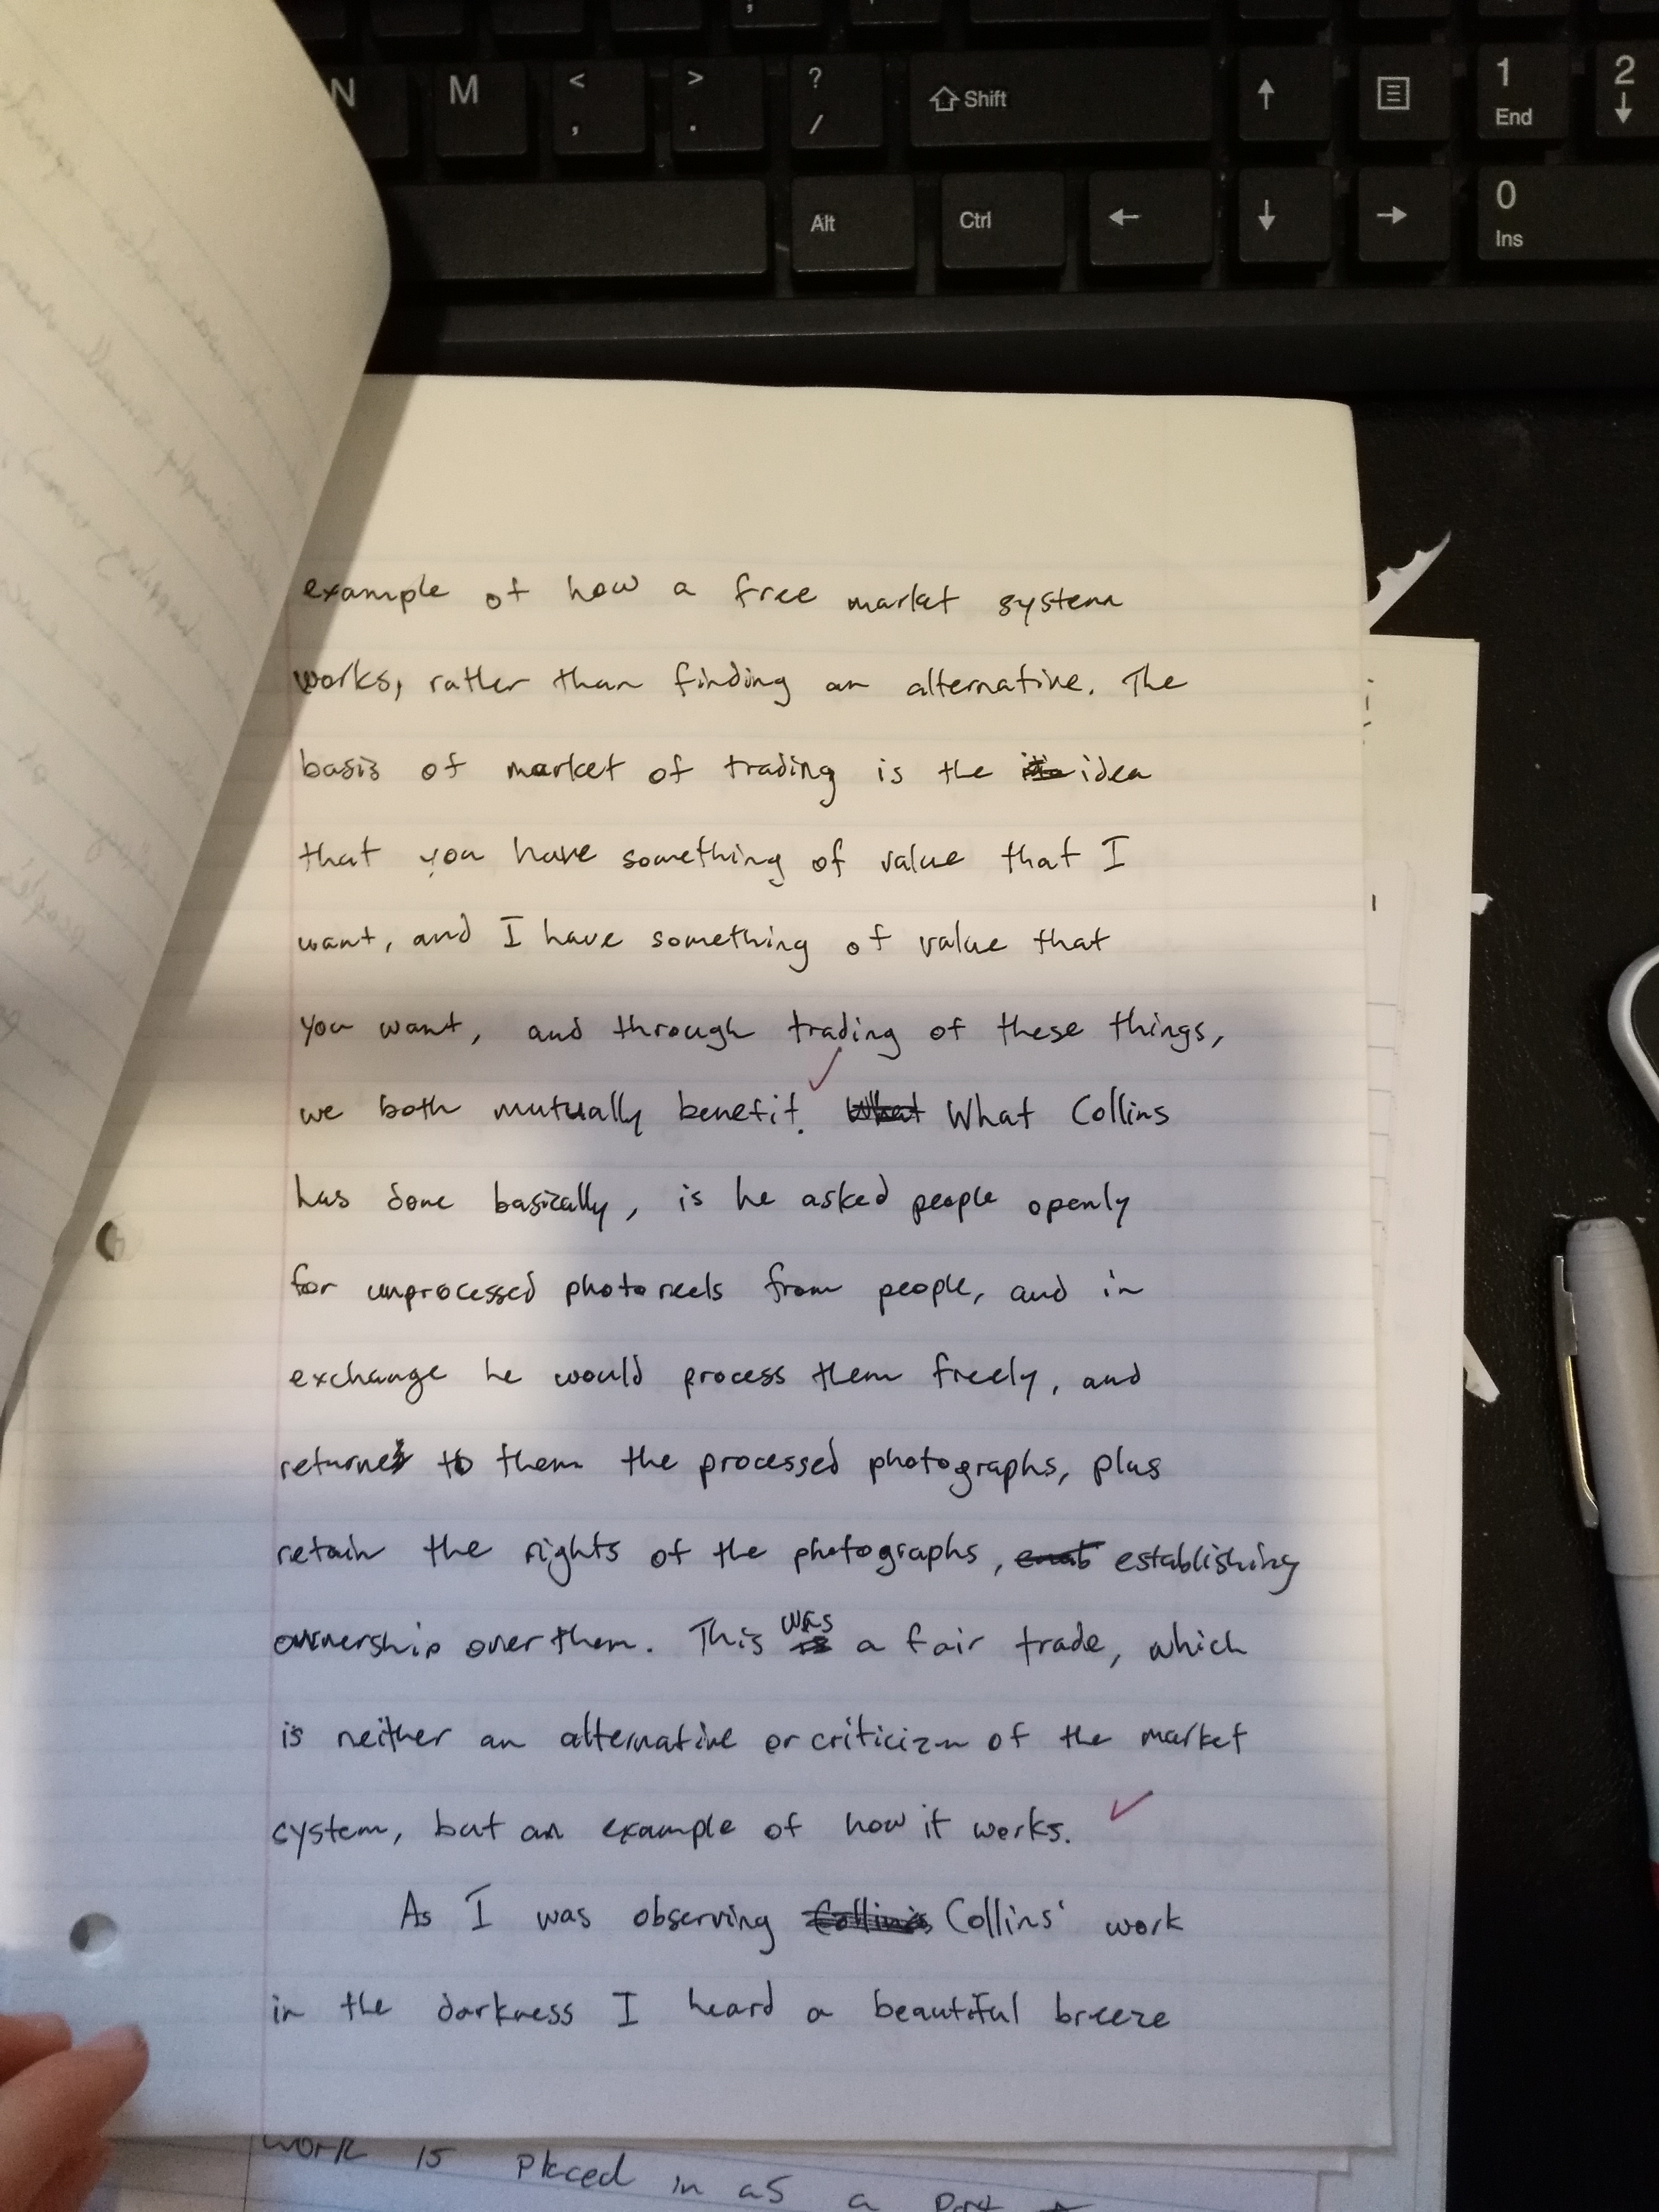 N M < , > . ? / Shift ↑ 1 End 2 ↓
Alt Ctrl ← ↓ → 0 Ins
example of how a free market system
works, rather than finding an alternative. The
basis of market of trading is the idea
that you have something of value that I
want, and I have something of value that
you want, and through trading of these things,
we both mutually benefit. What What Collins
has done basically, is he asked people openly
for unprocessed photoreels from people, and in
exchange he would process them freely, and
returned to them the processed photographs, plus
retain the rights of the photographs, establishing
ownership over them. This was a fair trade, which
is neither an alternative or criticizm of the market
system, but an example of how it works.
As I was observing Collins Collins' work
in the darkness I heard a beautiful breeze
work is placed in as a